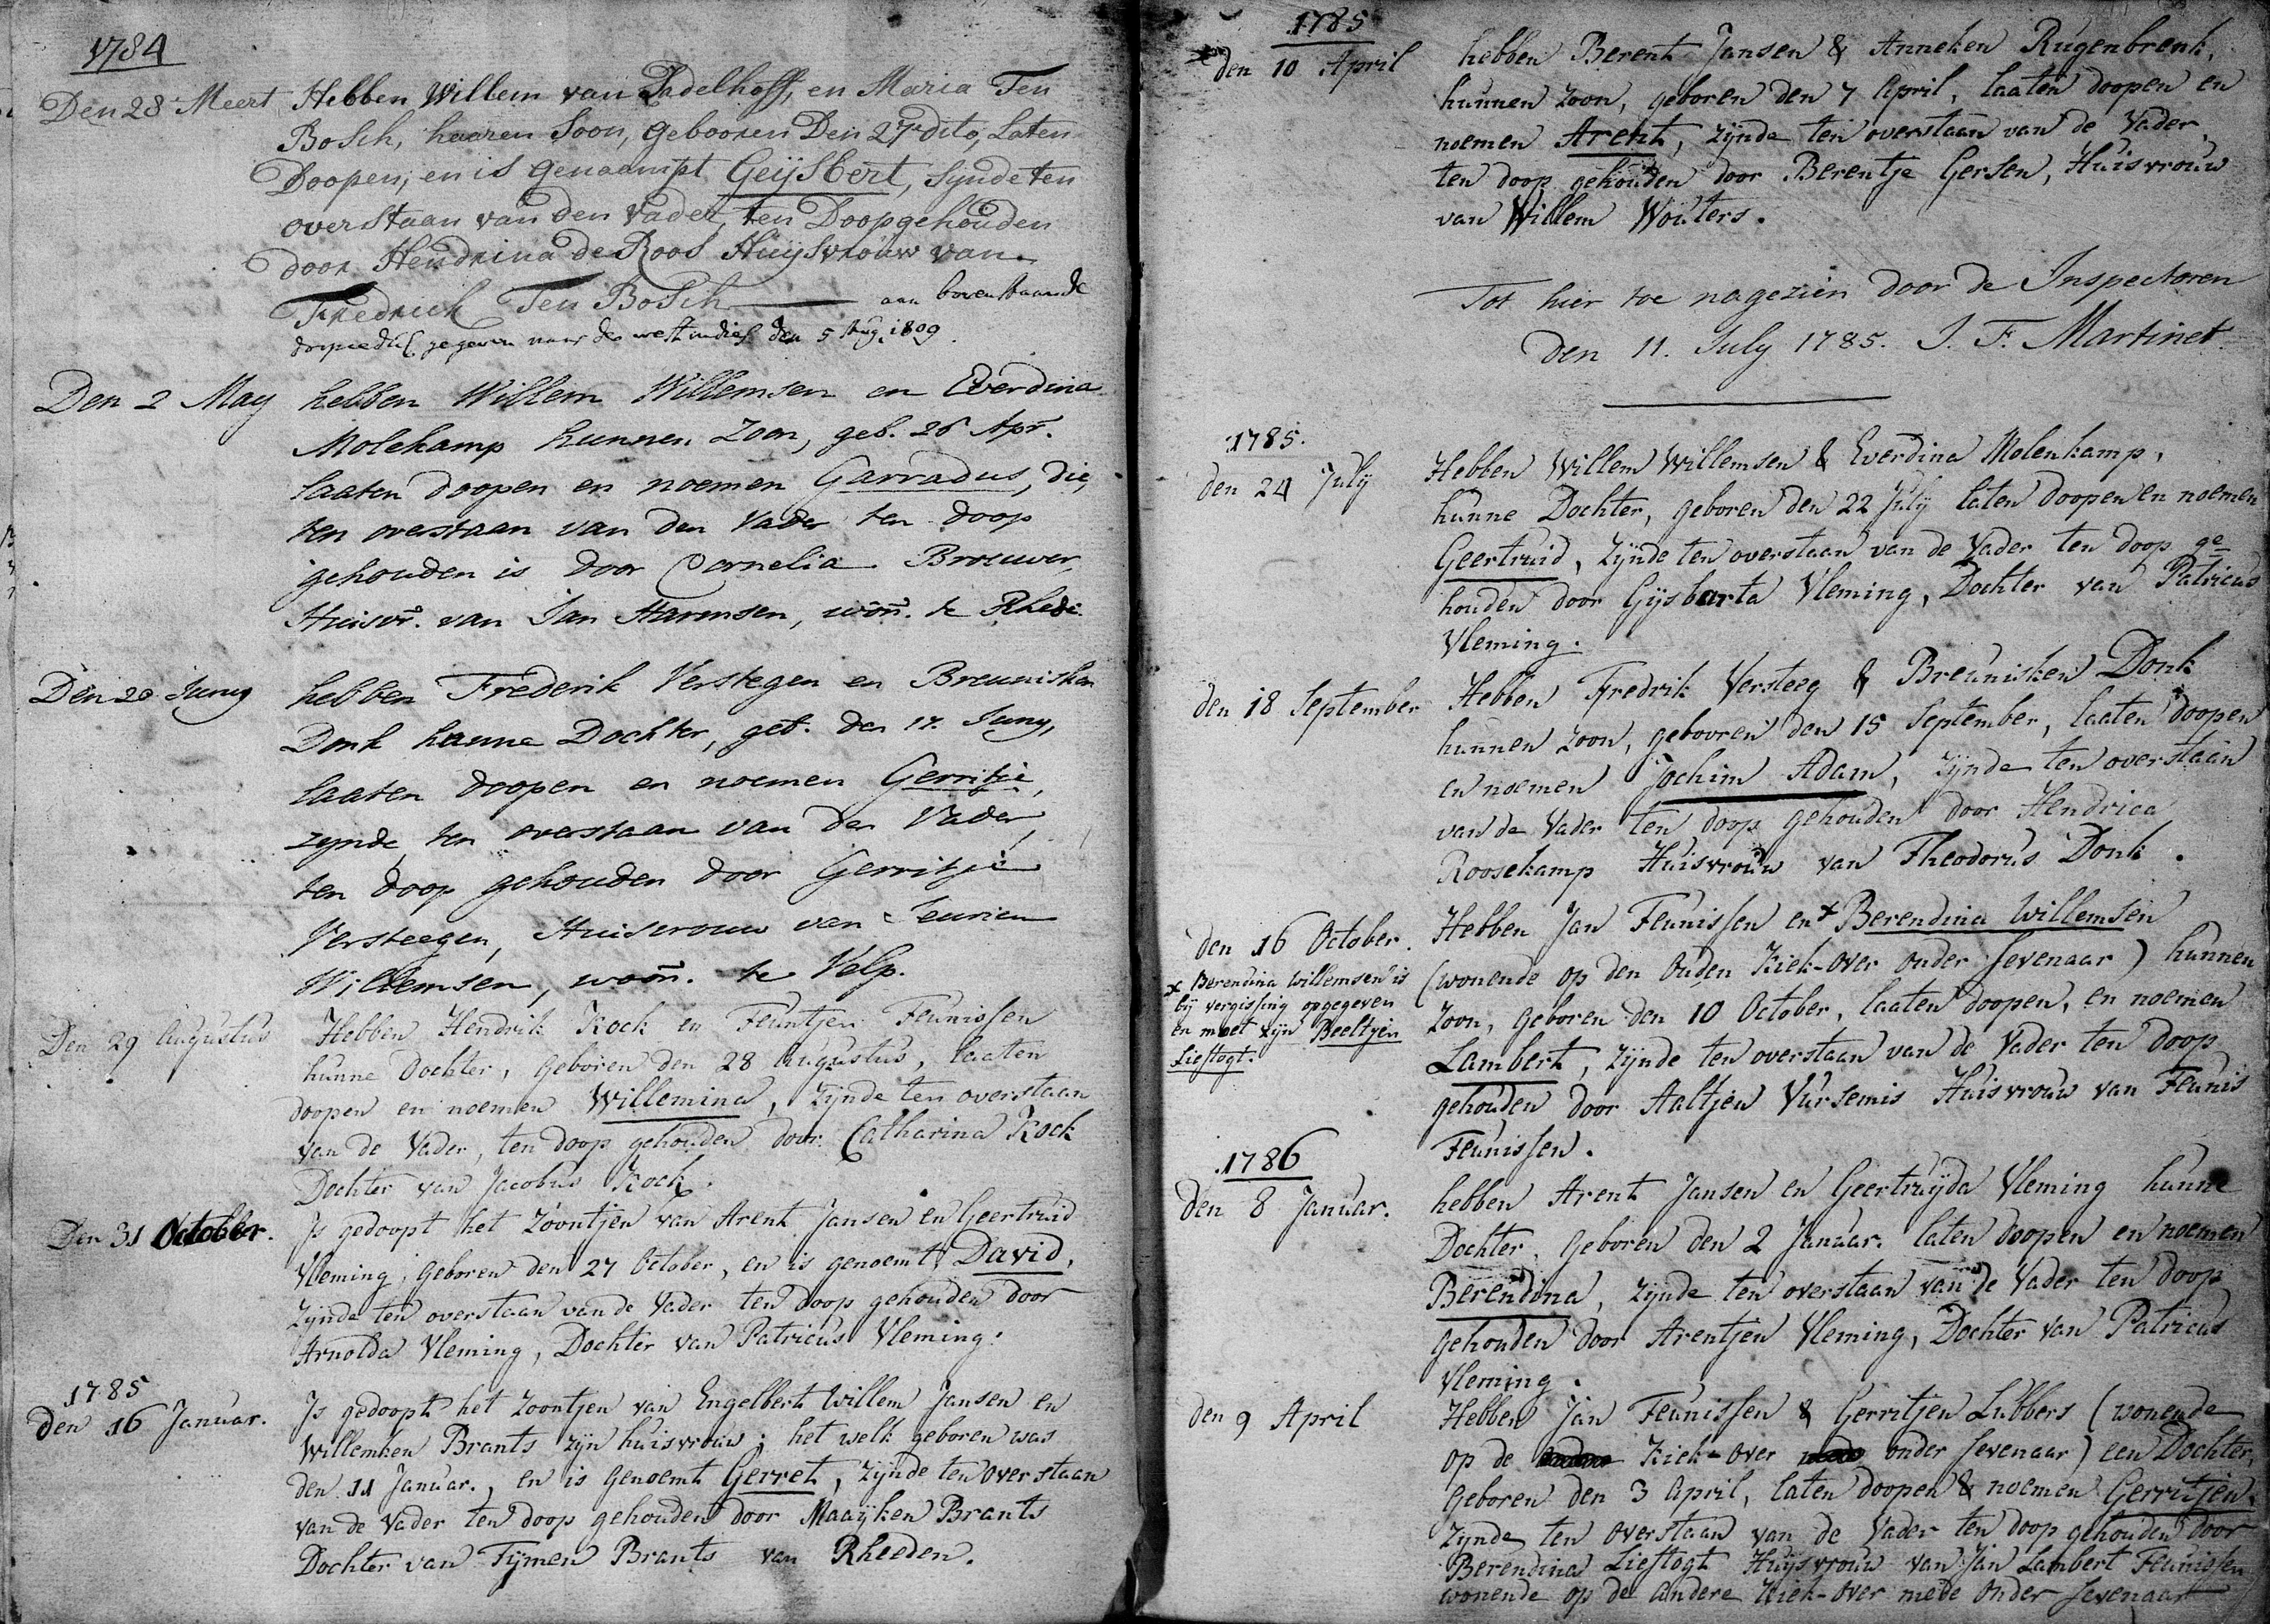 1784
Den 28 Meert Hebben Willem van Padelhoff, en Maria Ten
Bosch, haaren Soon, Gebooren Den 27 dito, Laten
Doopen, en is Genaampt Geijsbert, synde ten
overstaan van den Vader, ten Doop gehouden
door Hendrina de Roos Huijsvrouw van
Fredrick Ten Bosch aan bovenstaande
gegeven naar de westindies den 5 Aug. 1809.
Den 2 May hebben Willem Willemsen en Everdina
Molekamp hunnen Zoon, geb. 26 Apr.
laaten doopen en noemen Garradus, die,
ten overstaan van den Vader ten doop
gehouden is door Cornelia Brouwer,
Huisvr. van Jan Harmsen, won. te Rhede.
Den 20 Juny hebben Frederik Verstegen en Breunisken
Donk hunne Dochter, geb. den 17. Juny,
laaten doopen en noemen Gerritje,
zynde, ten overstaan van den Vader,
ten doop gehouden door Gerritje
Versteegen, Huisvrouw van Jeurien
Willemsen, woon. te Velp.
Den 29 Augustus Hebben Hendrik Kock en Teuntjen Teunissen
hunne Dochter, geboren den 28 Augustus, laaten
doopen en noemen Willemina, zijnde ten overstaan
van de Vader, ten doop gehouden door Catharina Kock
Dochter van Jacobus Kock.
Den 31 October. Is gedoopt het Zoontjen van Arent Jansen en Geertruid
Vleming, geboren den 27 October, en is genoemt David,
zijnde ten overstaan van de Vader ten doop gehouden door
Arnolda Vleming, Dochter van Patricus Vleming.
1785
den 16 Januar. Is gedoopt het Zoontjen van Engelbert Willem Jansen en
Willemken Brants zijn huisvrouw; het welk geboren was
den 11 Januar., en is genoemt Gerret, zijnde ten overstaan
van de Vader ten doop gehouden door Maaijken Brants
Dochter van Tijmen Brants van Rheeden.
1785
den 10 April hebben Berent Jansen & Anneken Rugenbrenk,
hunnen zoon, geboren den 7 April, laaten doopen en
noemen Arent, zijnde ten overstaan van de Vader,
ten doop gehouden door Berentje Gersen, Huisvrouw
van Willem Wouters.
Tot hier toe nagezien door de Inspectoren
den 11. July 1785. J. F. Martinet.
1785.
den 24 July Hebben Willem Willemsen & Everdina Molenkamp,
hunne Dochter, geboren den 22 July laten doopen en noemen
Geertruid, zijnde ten overstaan van de Vader ten doop ge
houden door Gijsbarta Vleming, Dochter van Patricus
Vleming.
den 18 September Hebben Fredrik Versteeg & Breunisken Donk
hunnen zoon, gebooren den 15 September, laaten doopen
en noemen Jochim Adam, zijnde ten overstaan
van de Vader ten doop gehouden door Hendrica
Roosekamp Huisvrouw van Theodorus Donk.
den 16 October. Hebben Jan Teunissen en x Berendina Willemsen
(wonende op den Ouden Kiek-over onder Sevenaar) hunnen
zoon, geboren den 10 October, laaten doopen, en noemen
Lambert, zijnde ten overstaan van de Vader ten doop
gehouden door Aaltjen Vursemis Huisvrouw van Teunis
Teunissen.
x Berendina Willemsen is
bij vergissing opgegeven
en moet zijn Beeltjen
Lieftogt.
1786
den 8 Januar. hebben Arent Jansen en Geertruijda Vleming hunne
Dochter, geboren den 2 Januar. laten doopen en noemen
Berendina, zijnde ten overstaan van de Vader ten doop
gehouden door Arentjen Vleming, Dochter van Patricus
Vleming.
den 9 April Hebben Jan Teunissen & Gerritjen Lubbers (wonende
op de Kiek-over onder Sevenaar) een Dochter,
geboren den 3 April, laten doopen & noemen Gerritjen,
zijnde ten overstaan van de Vader ten doop gehouden door
Berendina Lieftogt Huijsvrouw van Jan Lambert Teunissen
wonende op de andere Kiek-over mede onder Sevenaar